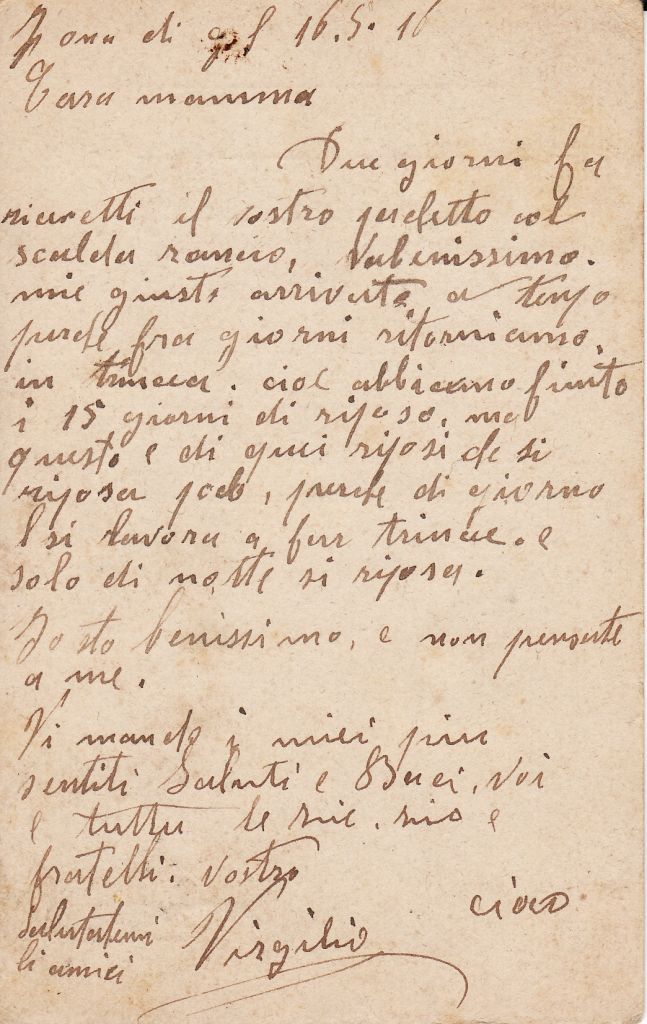 Zona di g 16.5.16
Cara mamma
Due giorni fa
ricevetti il vostro pachetto col
scalda rancio, Vabenissimo.
mie giusto arrivato a tenpo
perche fra giorni ritorniamo.
in trincea. cioe abbiamo finito
i 15 giorni di riposo. ma
questo e di quei riposi che si
riposa poco, perche di giorno
si lavora a far trincee. e
solo di notte si riposa.
Io sto benissimo, e non pensate
a me.
Vi mando i miei piu
sentiti Saluti e Baci. Voi
e tutta le e
fratelli. vostro
ciao
Salutatemi Virgilio
li amici